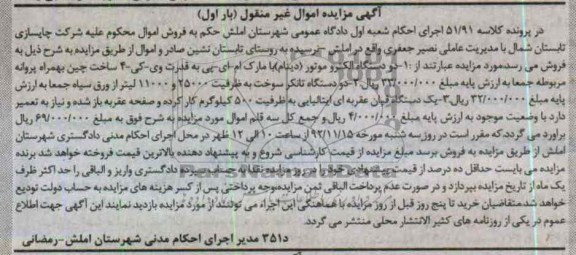 آگهی مزایده اموال غیر منقول (بار اول)
در پرونده کلاسه ۵۱/۹۱ اجرای احکام شعبه اول دادگاه عمومی شهرستان املش حکم به فروش اموال محکوم علیه شرکت چایسازی
تابستان شمال با مدیریت عاملی نصیر جعفری واقع در املش - نرسیده به روستای تابستان نشین صادر و اموال از طریق مزایده به شرح ذیل به
فروش می رسد مورد مزایده عبارتند از :۱- دو دستگاه الکترو موتور (دینام) با مارک ام-ای-پی به قدرت وی-کی-۴ ساخت چین بهمراه پروانه
مربوطه جمعا به ارزش پایه مبلغ ۳۳/۰۰۰/۰۰۰ ریال ۲-دو دستگاه تانکر سوخت به ظرفیت ۲۵۰۰۰ و ۱۱۰۰۰ لیتر از ورق سیاه جمعا به ارزش
پایه مبلغ ۳۲/۰۰۰/۰۰۰ ریال۳-یک دستگاه قپان عقربه ای ایتالیایی به ظرفیت ۵۰۰ کیلوگرم کار کرده و صفحه عقربه باز شده و نیاز به تعمیر
دارد با وضعیت موجود به ارزش پایه مبلغ ۴/۰۰۰/۰۰۰ ریال و جمع کل سه قلم اموال مورد مزایده به شرح فوق به مبلغ ۶۹/۰۰۰/۰۰۰ ریال
براورد می گردد که مقرر است در روز سه شنبه مورخه ۹۲/۱۱/۱۵ از ساعت ۱۰ الی ۱۲ ظهر در محل اجرای احکام مدنی دادگستری شهرستان
املش از طریق مزایده به فروش برسد مبلغ مزایده از قیمت کارشناسی شروع و به پیشنهاد دهنده بالاترین قیمت فروخته خواهد شد برنده
مزایده می بایست حداقل ده درصد از قیمت پیشنهادی خود را در روز مزایده نقدا به حساب سپرده دادگستری واریز و الباقی را حد اکثر ظرف
یک ماه از تاریخ مزایده بپردازد و در صورت عدم پرداخت الباقی ثمن مزایده وجه پرداختی پس از کسر هزینه های مزایده به حساب دولت تودیع
خواهد شد متقاضیان خرید تا پنج روز قبل از روز مزایده با هماهنگی این اجراء می توانند از مورد مزایده بازدید نمایند این آگهی جهت اطلاع
عموم در یکی از روزنامه های کثیر الانتشار محلی منتشر می گردد.
د۳۵۱ مدیر اجرای احکام مدنی شهرستان املش-رمضانی